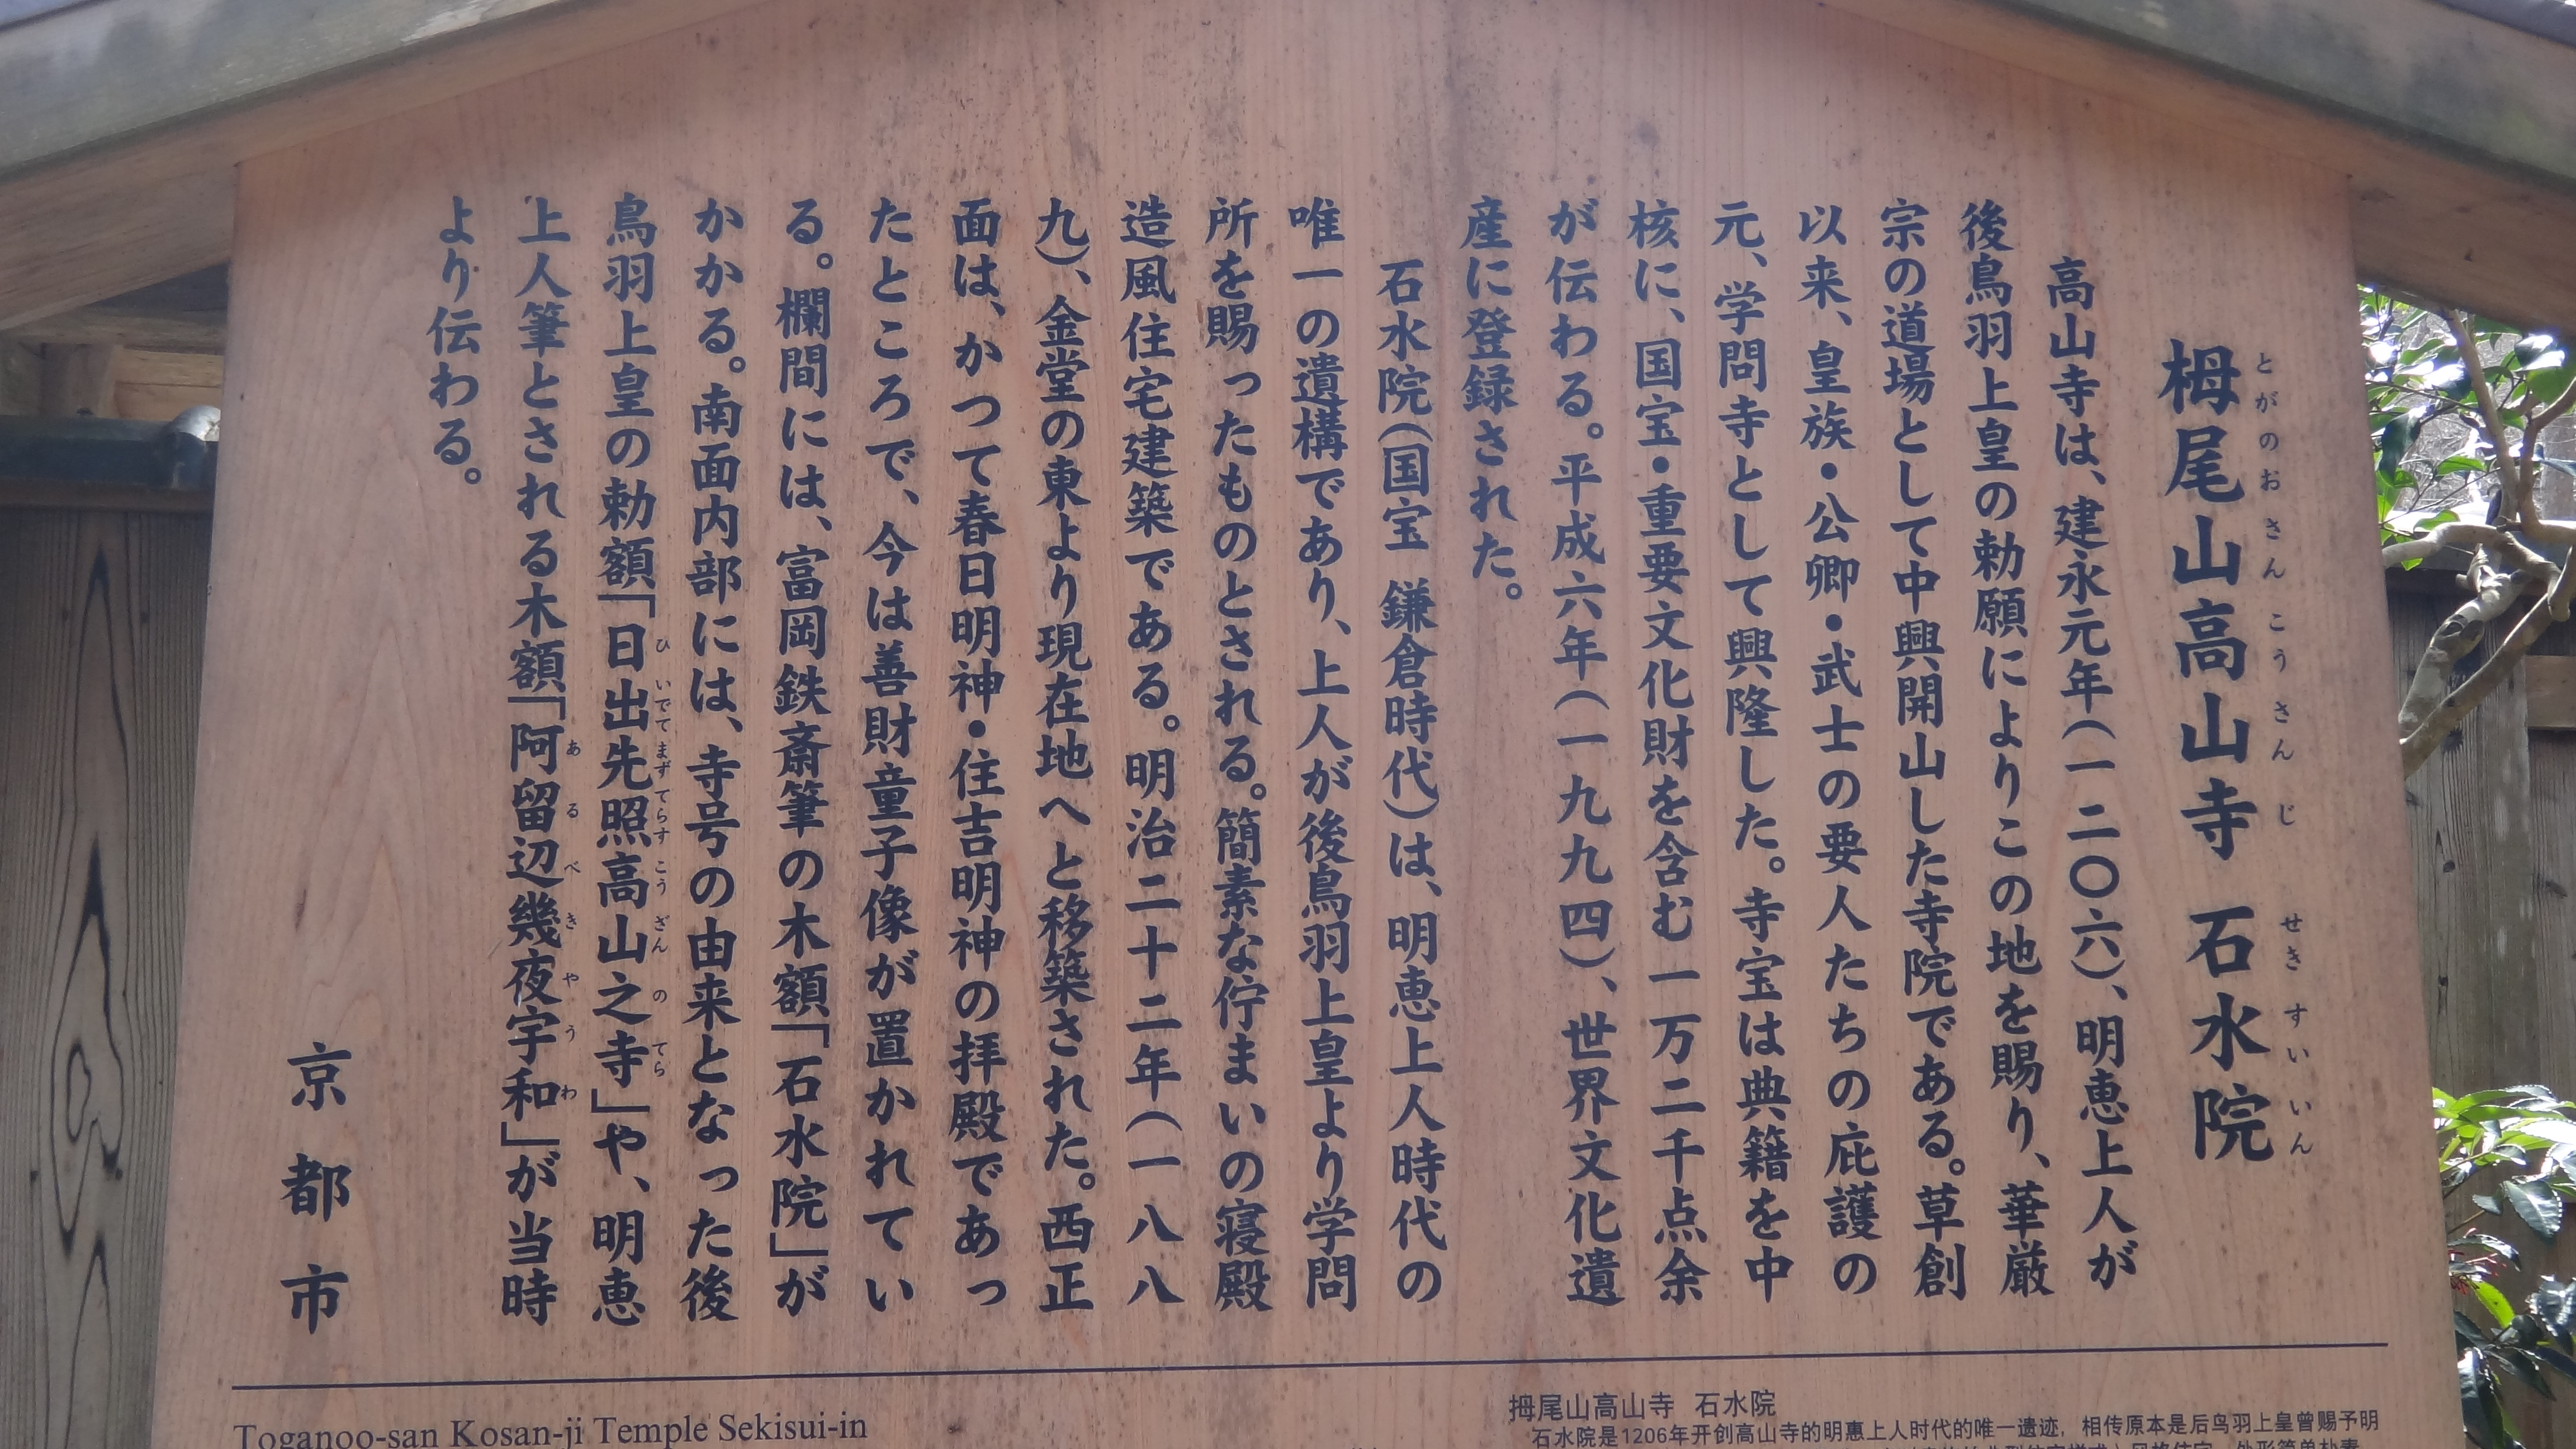 栂尾山高山寺 石水院
とがのおさん こうさんじ せきすいいん
高山寺は、建永元年(一二〇六)、明恵上人が
後鳥羽上皇の勅願によりこの地を賜り、華厳
宗の道場として中興開山した寺院である。草創
以来、皇族・公卿・武士の要人たちの庇護の
元、学問寺として興隆した。寺宝は典籍を中
核に、国宝・重要文化財を含む一万二千点余
が伝わる。平成六年(一九九四)、世界文化遺
産に登録された。
石水院(国宝 鎌倉時代)は、明恵上人時代の
唯一の遺構であり、上人が後鳥羽上皇より学問
所を賜ったものとされる。簡素な佇まいの寝殿
造風住宅建築である。明治二十二年(一八八
九)、金堂の東より現在地へと移築された。西正
面は、かつて春日明神・住吉明神の拝殿であっ
たところで、今は善財童子像が置かれてい
る。欄間には、富岡鉄斎筆の木額「石水院」が
かかる。南面内部には、寺号の由来となった後
鳥羽上皇の勅額「日出先照高山之寺」や、明恵
ひ いでて まず てらす こう ざん の てら
上人筆とされる木額「阿留辺幾夜宇和」が当時
あ る べ き や う わ
より伝わる。
京都市
Toganoo-san Kosan-ji Temple Sekisui-in
拇尾山高山寺 石水院
石水院是1206年开创高山寺的明惠上人时代的唯一遗迹，相传原本是后鸟羽上皇曾赐予明